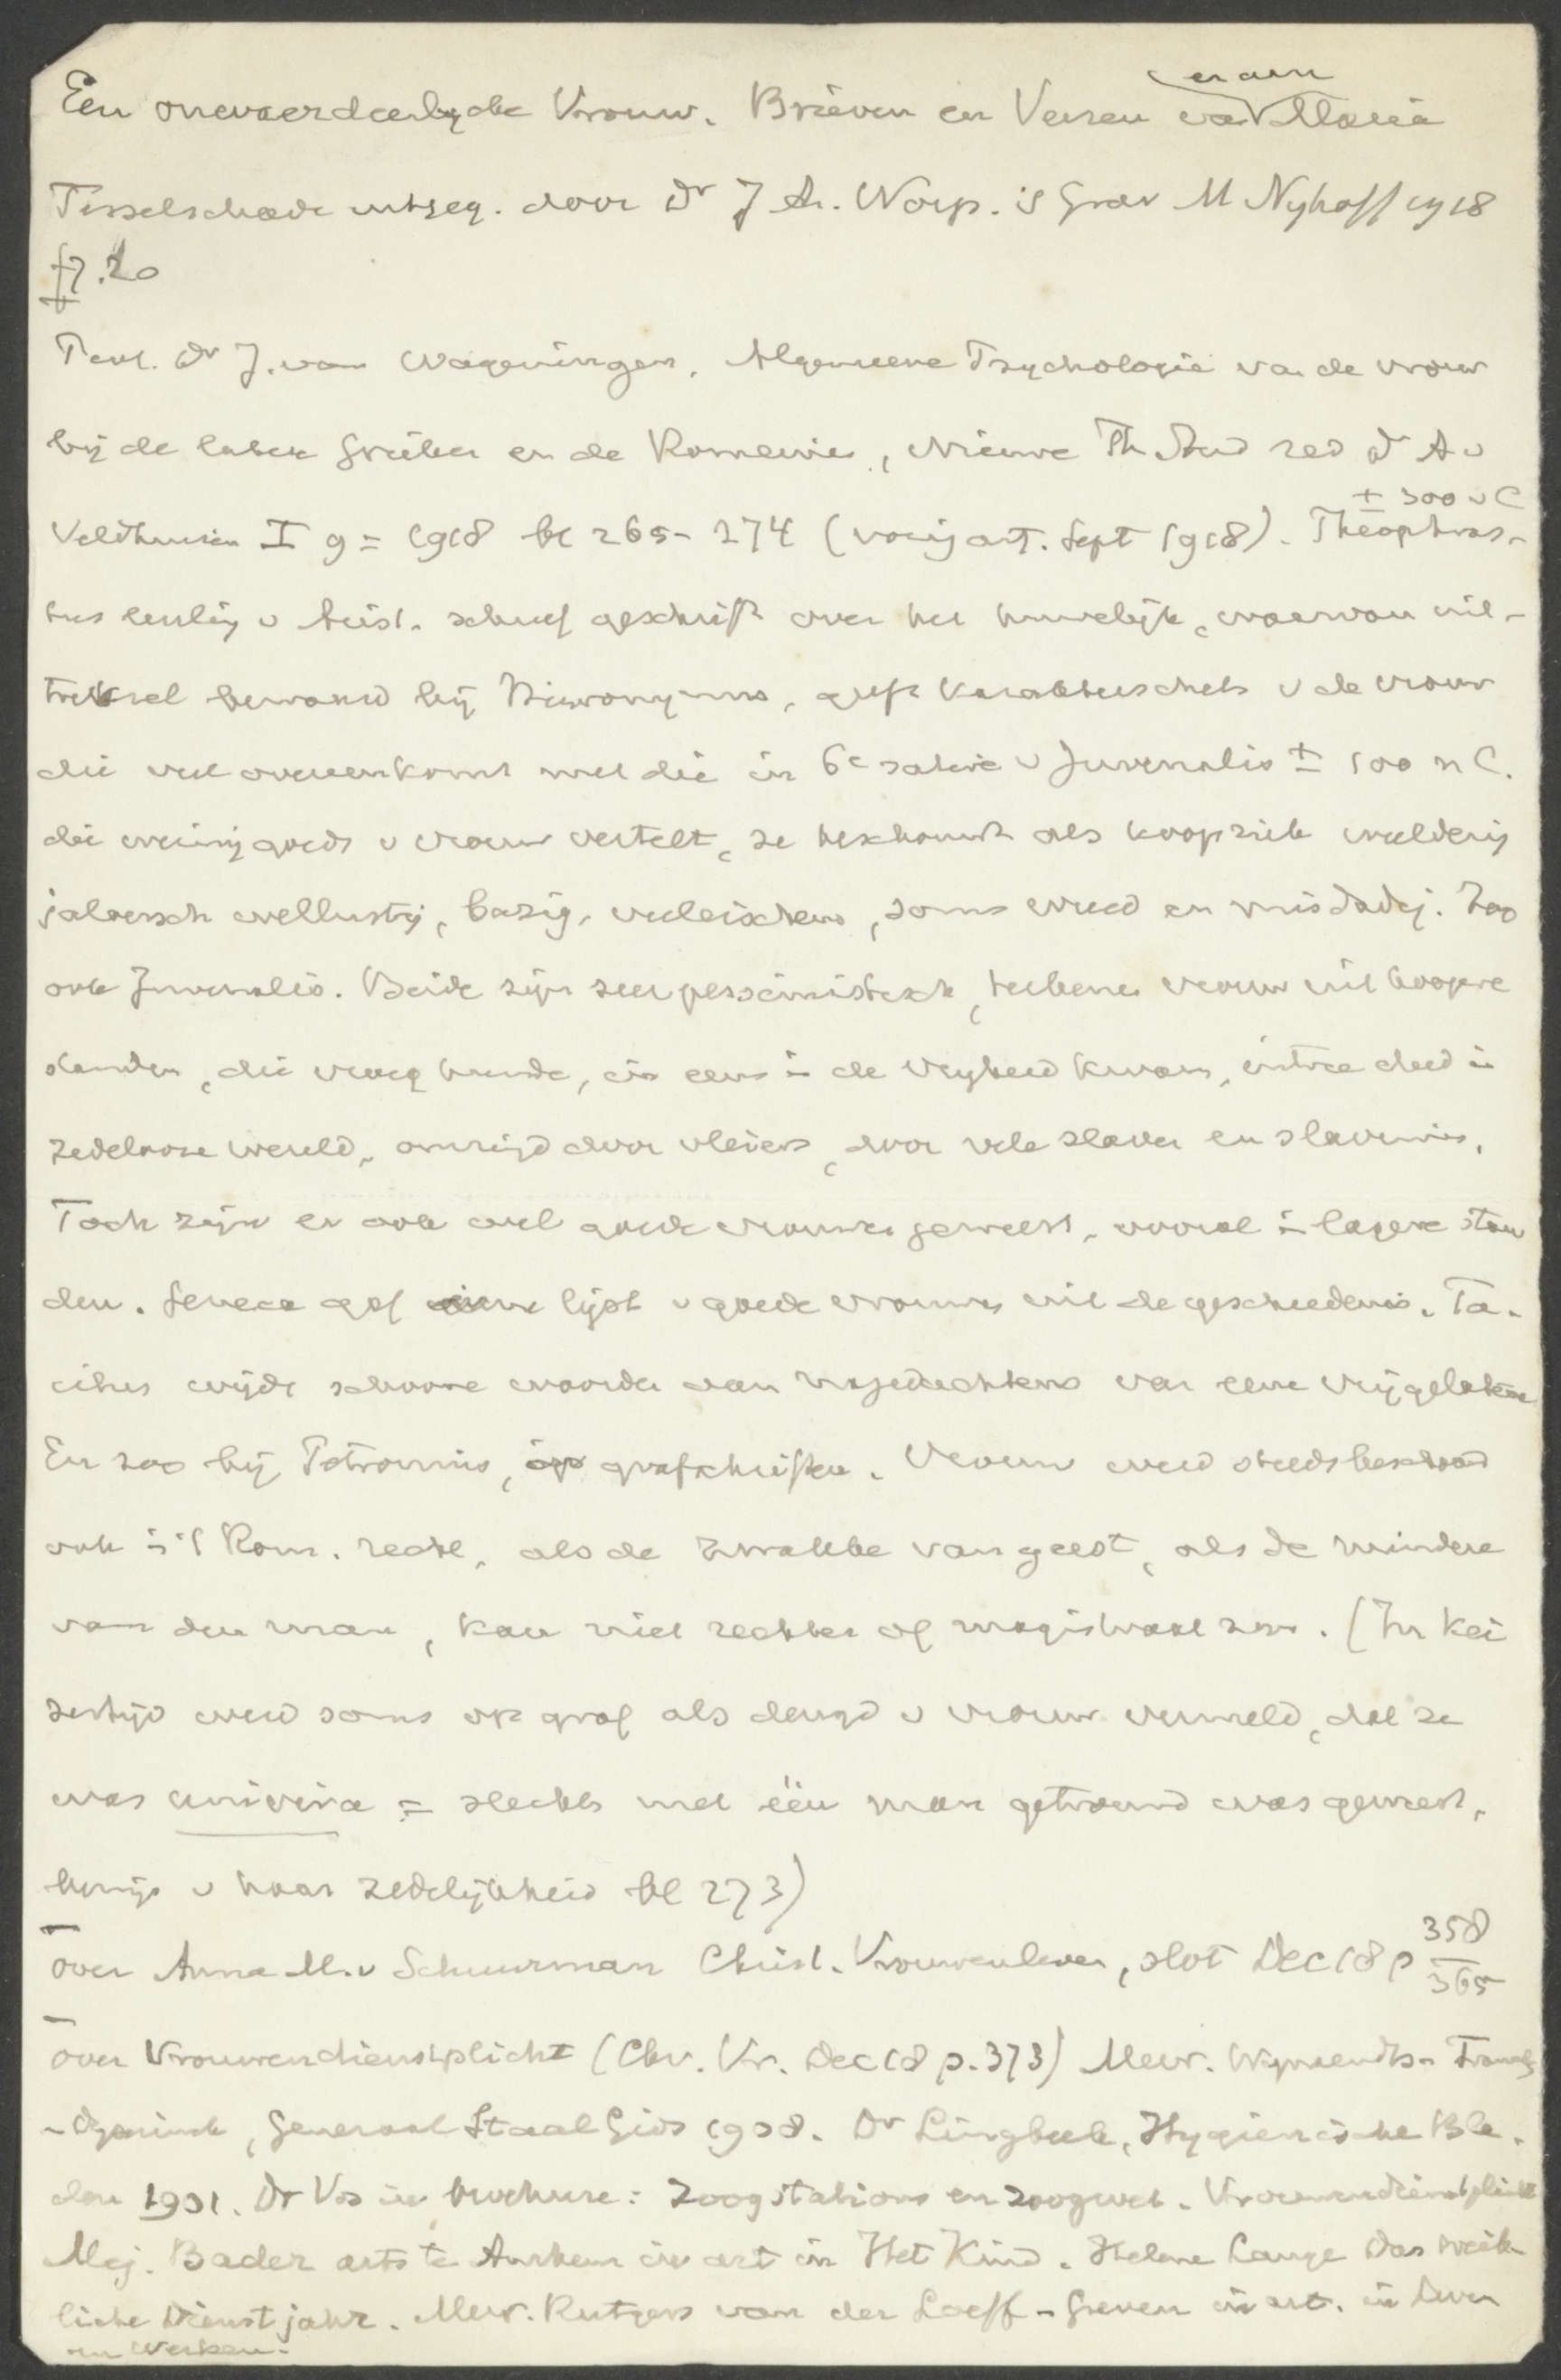 en aan
Een onwaardeerlycke Vrouw. Brieven en Verzen van Maria
Tesselschade uitgeg. door Dr J A. Worp. 's Grav M Nyhoff 1918
f 7.20
Prof. Dr J. van Wageningen, Algemeene Psychologie van de vrouw
bij de latere Grieken en de Romeinen, Nieuwe Th. Stud red Dr A v
± 300 v C
Veldhuizen I 9 = 1918 bl 265-274 (vorig art. Sept 1918). Theophras-
tus leerling v Arist. schreef geschrift over het huwelijk, waarvan uit-
treksel bewaard bij Hieronymus, geeft karakterschets v de vrouw
die veel overeenkomt met die in 6e satire v Juvenalis ± 100 n C.
die weinig goeds v vrouw vertelt, ze beschouwt als koopziek weelderig
jaloersch wellustig, bazig, veeleischend, soms wreed en misdadig. Zoo
ook Juvenalis. Beide zijn zeer pessimistisch, teekenen vrouw uit hoogere
standen, die vroeg huwde, in eens in de vryheid kwam, intree deed in
zedelooze wereld, omringd door vleiers, door vele slaven en slavinnen.
Toch zijn er ook wel goede vrouwen geweest, vooral in lagere stan
den. Seneca gaf eene lijst v goede vrouwen uit de geschiedenis. Ta-
citus wijdt schoone woorden aan nagedachtenis van eene vrijgelatene
En zoo bij Petronius, op grafschriften. Vrouw werd steeds beschouwd
ook in 't Rom. recht, als de zwakke van geest, als de mindere
van den man, kan niet rechter of magistraat zijn. (In kei
zertijd werd soms op graf als deugd v vrouw vermeld, dat ze
was univira = slechts met één man getrouwd was geweest,
bewijs v haar zedelijkheid bl 273)
over Anna M. v Schuurman Christ. Vrouwenleven, slot Dec 18 p 358
365
over Vrouwendienstplicht (Chr. Vr. Dec 18 p. 373) Mevr. Wynaendts- Francken
-Dyserinck, Generaal Staal Gids 1908. Dr Lingbeek, Hygienische Bla-
den 1901. Dr Vos in brochure: Zoogstations en zoogwet. Vrouwendienstplicht
Mej. Bader arts te Arnhem in art in Het Kind. Helene Lange Das weib
liche Dienstjahr. Mevr. Rutgers van der Loeff-Greven in art. in Leven
en Werken.